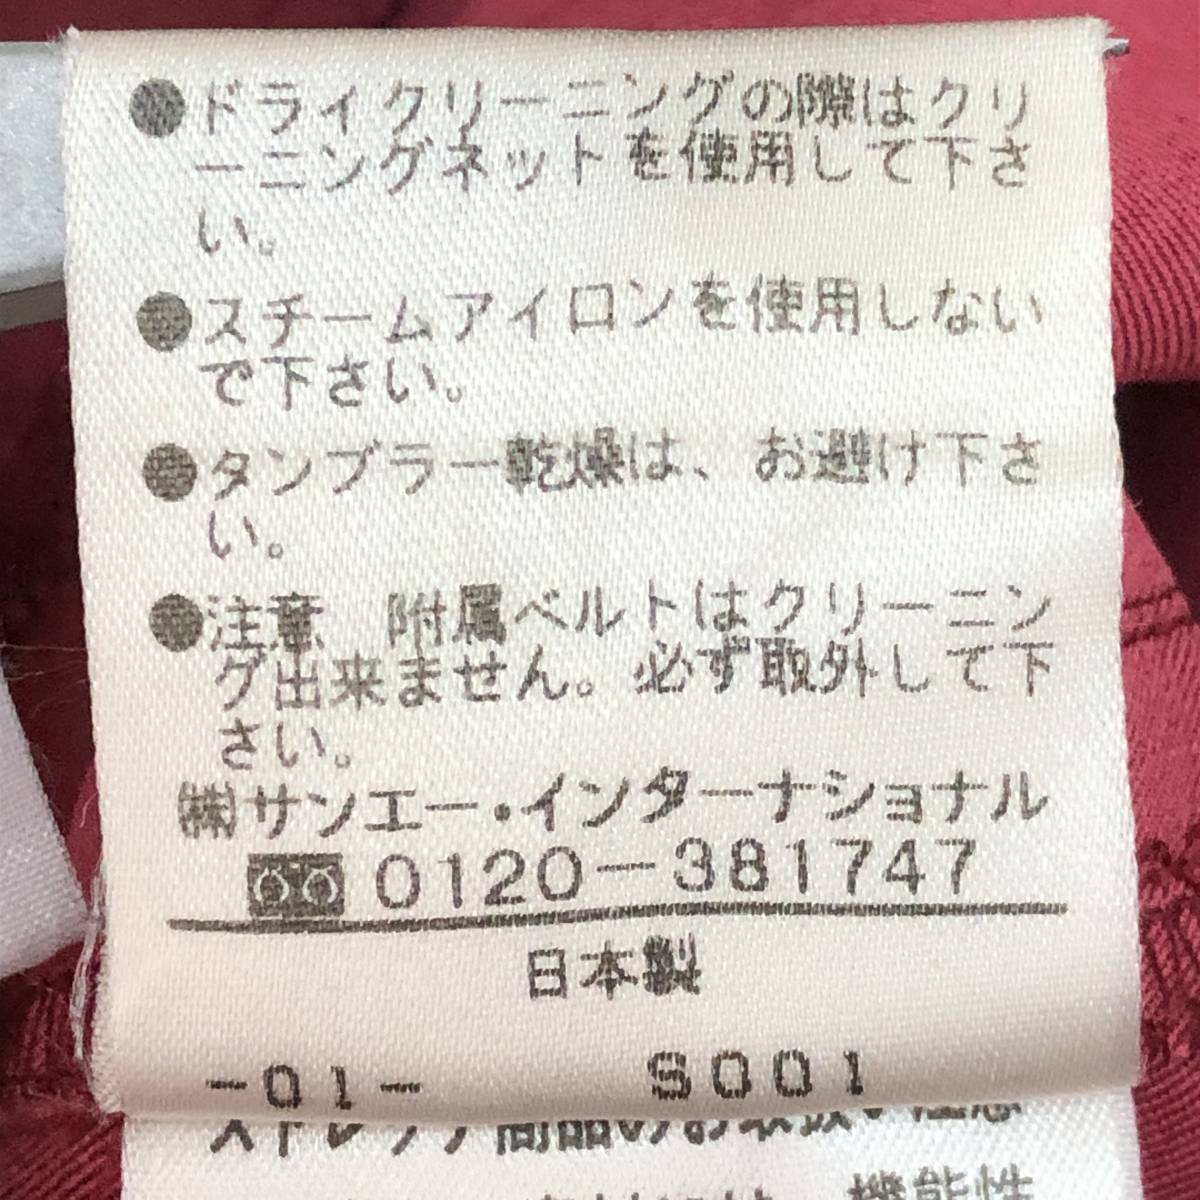 ●ドライクリーニングの際はクリ
ーニングネットを使用して下さ
い。
●スチームアイロンを使用しない
で下さい。
●タンブラー乾燥は、お避け下さ
い。
●注意　附属ベルトはクリーニン
グ出来ません。必ず取外して下
さい。
㈱サンエー・インターナショナル
0120－381747
日本製
-01-　S001
ストレッチ商品のお取扱い注意
機能性